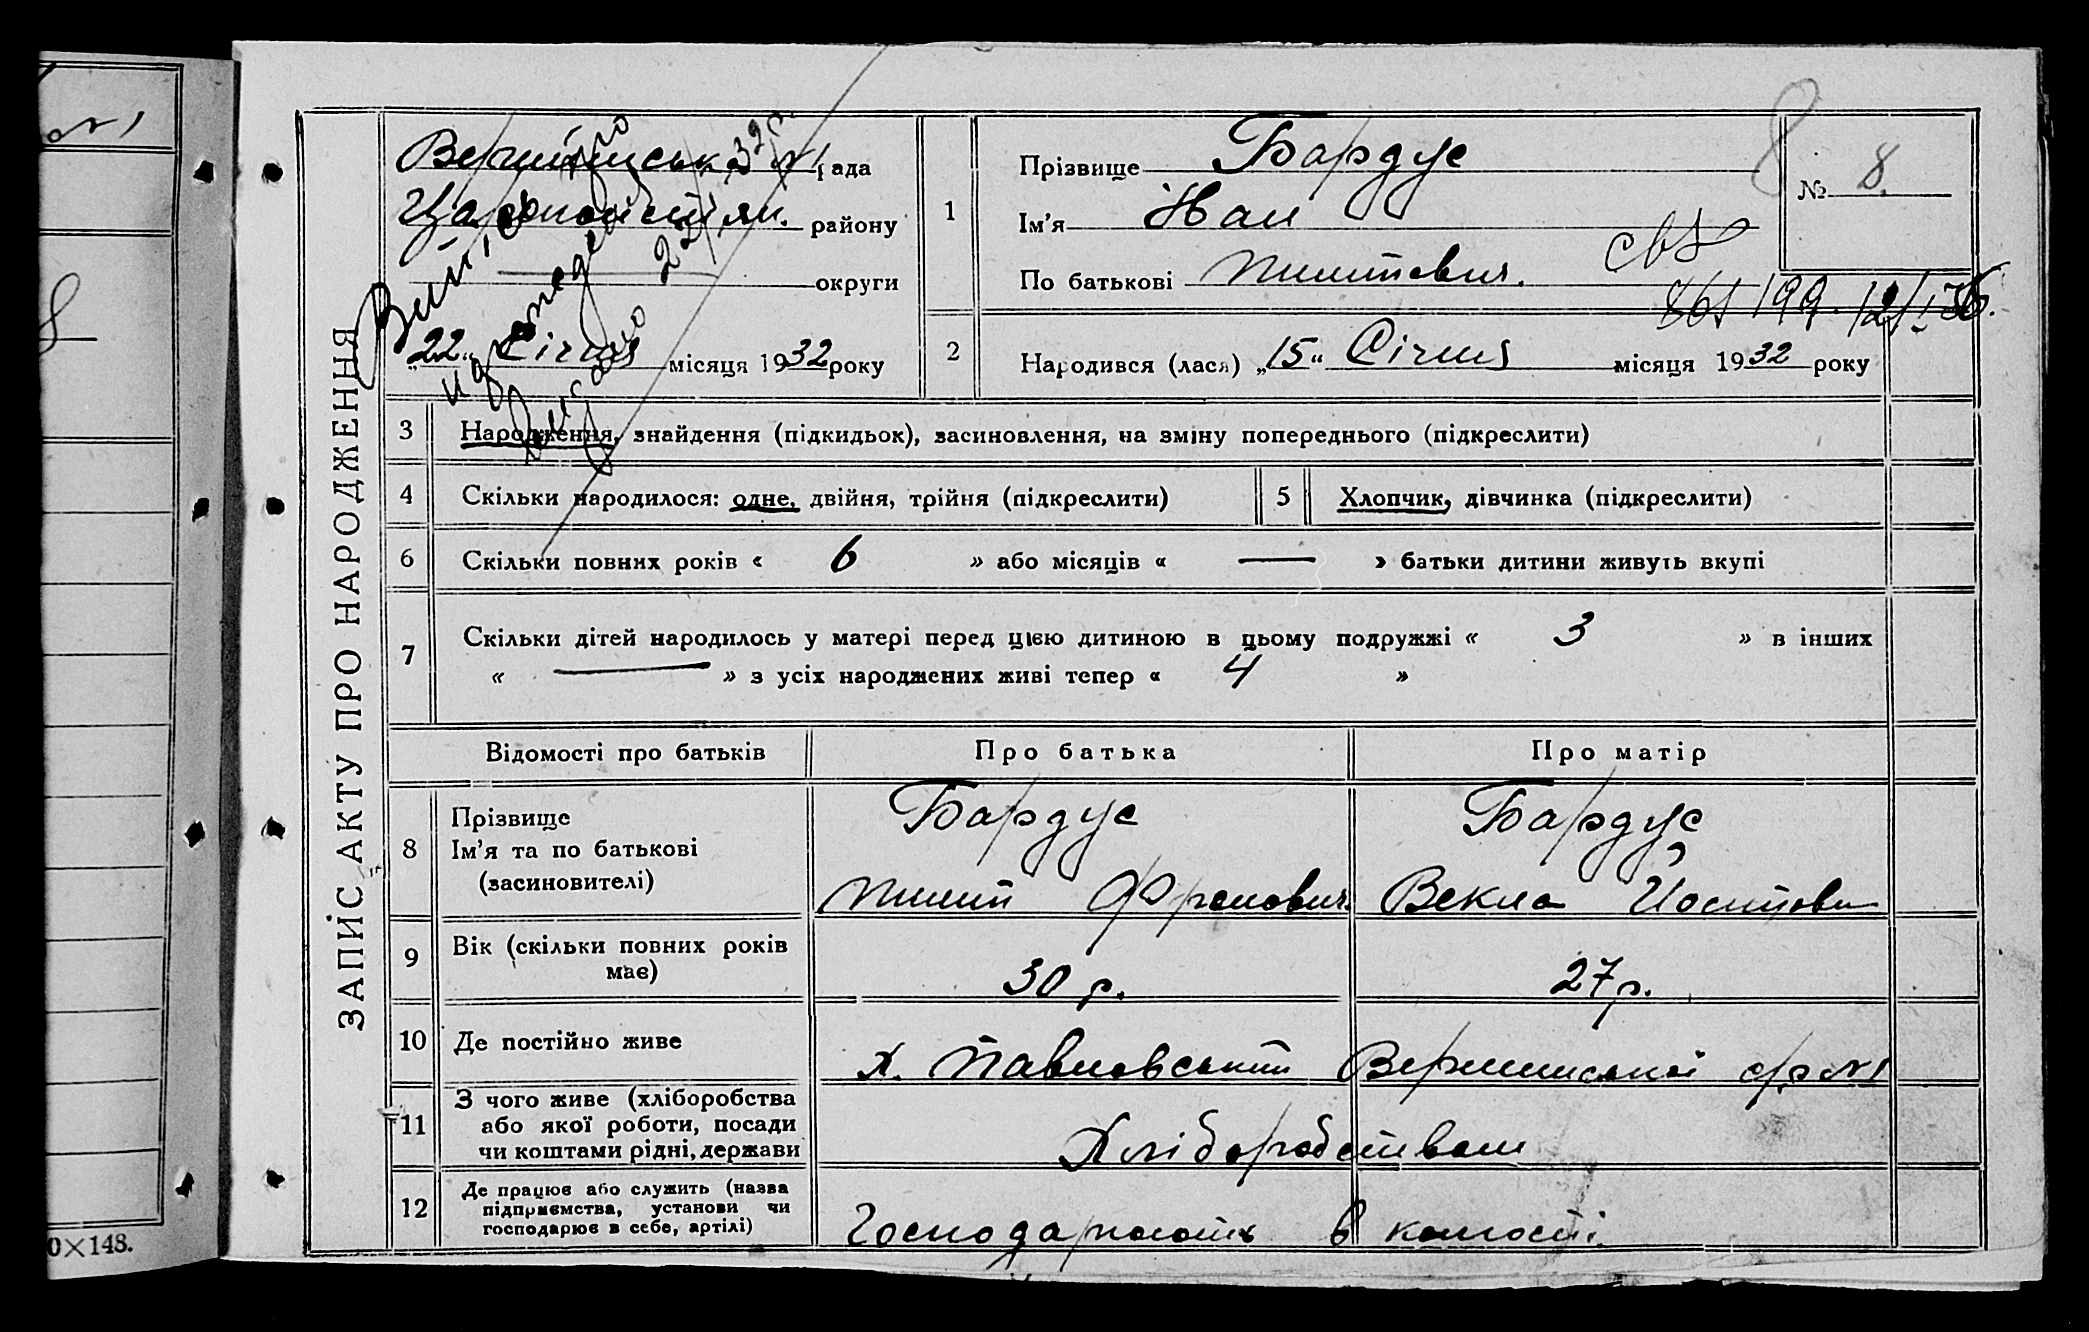 №1
8
0×148.
ЗАПИС АКТУ ПРО НАРОДЖЕННЯ
рада
району
округи
„22“ Січня місяця 1932 року
1
Прізвище Бардус
Ім’я Іван
По батькові Пилипович.
8
№ 8.
св
199 12/I 36.
2
Народився (лася) „15“ Січня місяця 1932 року
3
Народження, знайдення (підкидьок), засиновлення, на зміну попереднього (підкреслити)
4
Скільки народилося: одне, двійня, трійня (підкреслити)
5
Хлопчик, дівчинка (підкреслити)
6
Скільки повних років « 6 » або місяців « — » батьки дитини живуть вкупі
7
Скільки дітей народилось у матері перед цією дитиною в цьому подружжі « 3 » в інших
« — » з усіх народжених живі тепер « 4 »
Відомості про батьків
Про батька
Про матір
8
Прізвище
Ім’я та по батькові
(засиновителі)
Бардус
Пилип
Бардус
Векла Йосиповн
9
Вік (скільки повних років
має)
30 р.
27 р.
10
Де постійно живе
х. Павловський
с/р №1
11
З чого живе (хліборобства
або якої роботи, посади
чи коштами рідні, держави
Хліборобством
12
Де працює або служить (назва
підприємства, установи чи
господарює в себе, артілі)
в